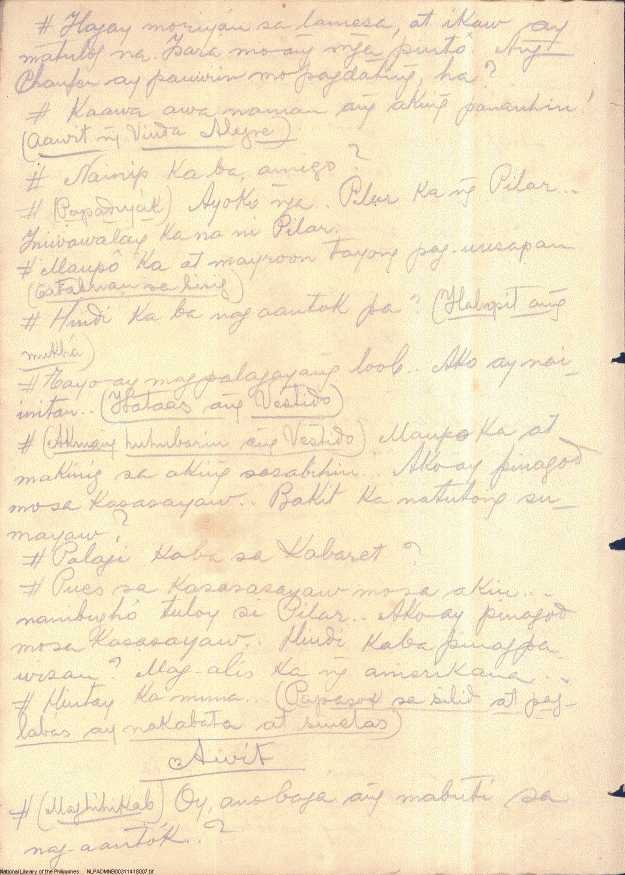 # Hayay moriyán sa lamesa, at ikaw ay
matulog na. Isara mo ang mga pintô. Ang
Chaufer ay pauwiin mo pagdating, ha?
# Kaawa awa naman ang aking panauhin!
(Aawit ng Viuda Alegre)
# Nainip Ka ba, amigo?
# (Papadyák) Ayoko nga.. Pilar Ka ng Pilar...
Iniwawalay Ka na ni Pilar.
# Maupô Ka at mayroon tayong pag-uusapan
sa
# Hindi Ka ba nag aantok pa? (Hahapit ang
mukhâ)
# Tayo ay magpalagayang loob.. Ako ay nai-
initan.. (Itataas ang Vestido)
# (Akmang huhubarin ang Vestido) Maupo Ka at
makinig sa aking sasabihin... Ako ay pinagod
mo sa Kasasayaw.. Bakit Ka natutong su-
mayaw?
# Palagi Kaba sa Kabaret?
# Pues sa Kasasasayaw mo sa akin...
nanibughô tuloy si Pilar.. Ako ay pinagod
mo sa Kasasayaw.. Hindi Kaba pinagpa-
wisan? Mag-alis Ka ng amerikana...
# Hintay Ka muna... (Papasok sa silid at pag-
labas ay nakabata at sinelas)
Awit
# (Maghihikab) Oy, ano baga ang mabuti sa
nag aantók..?
National Library of the Philippines NLPADMNEB00311418007.tif